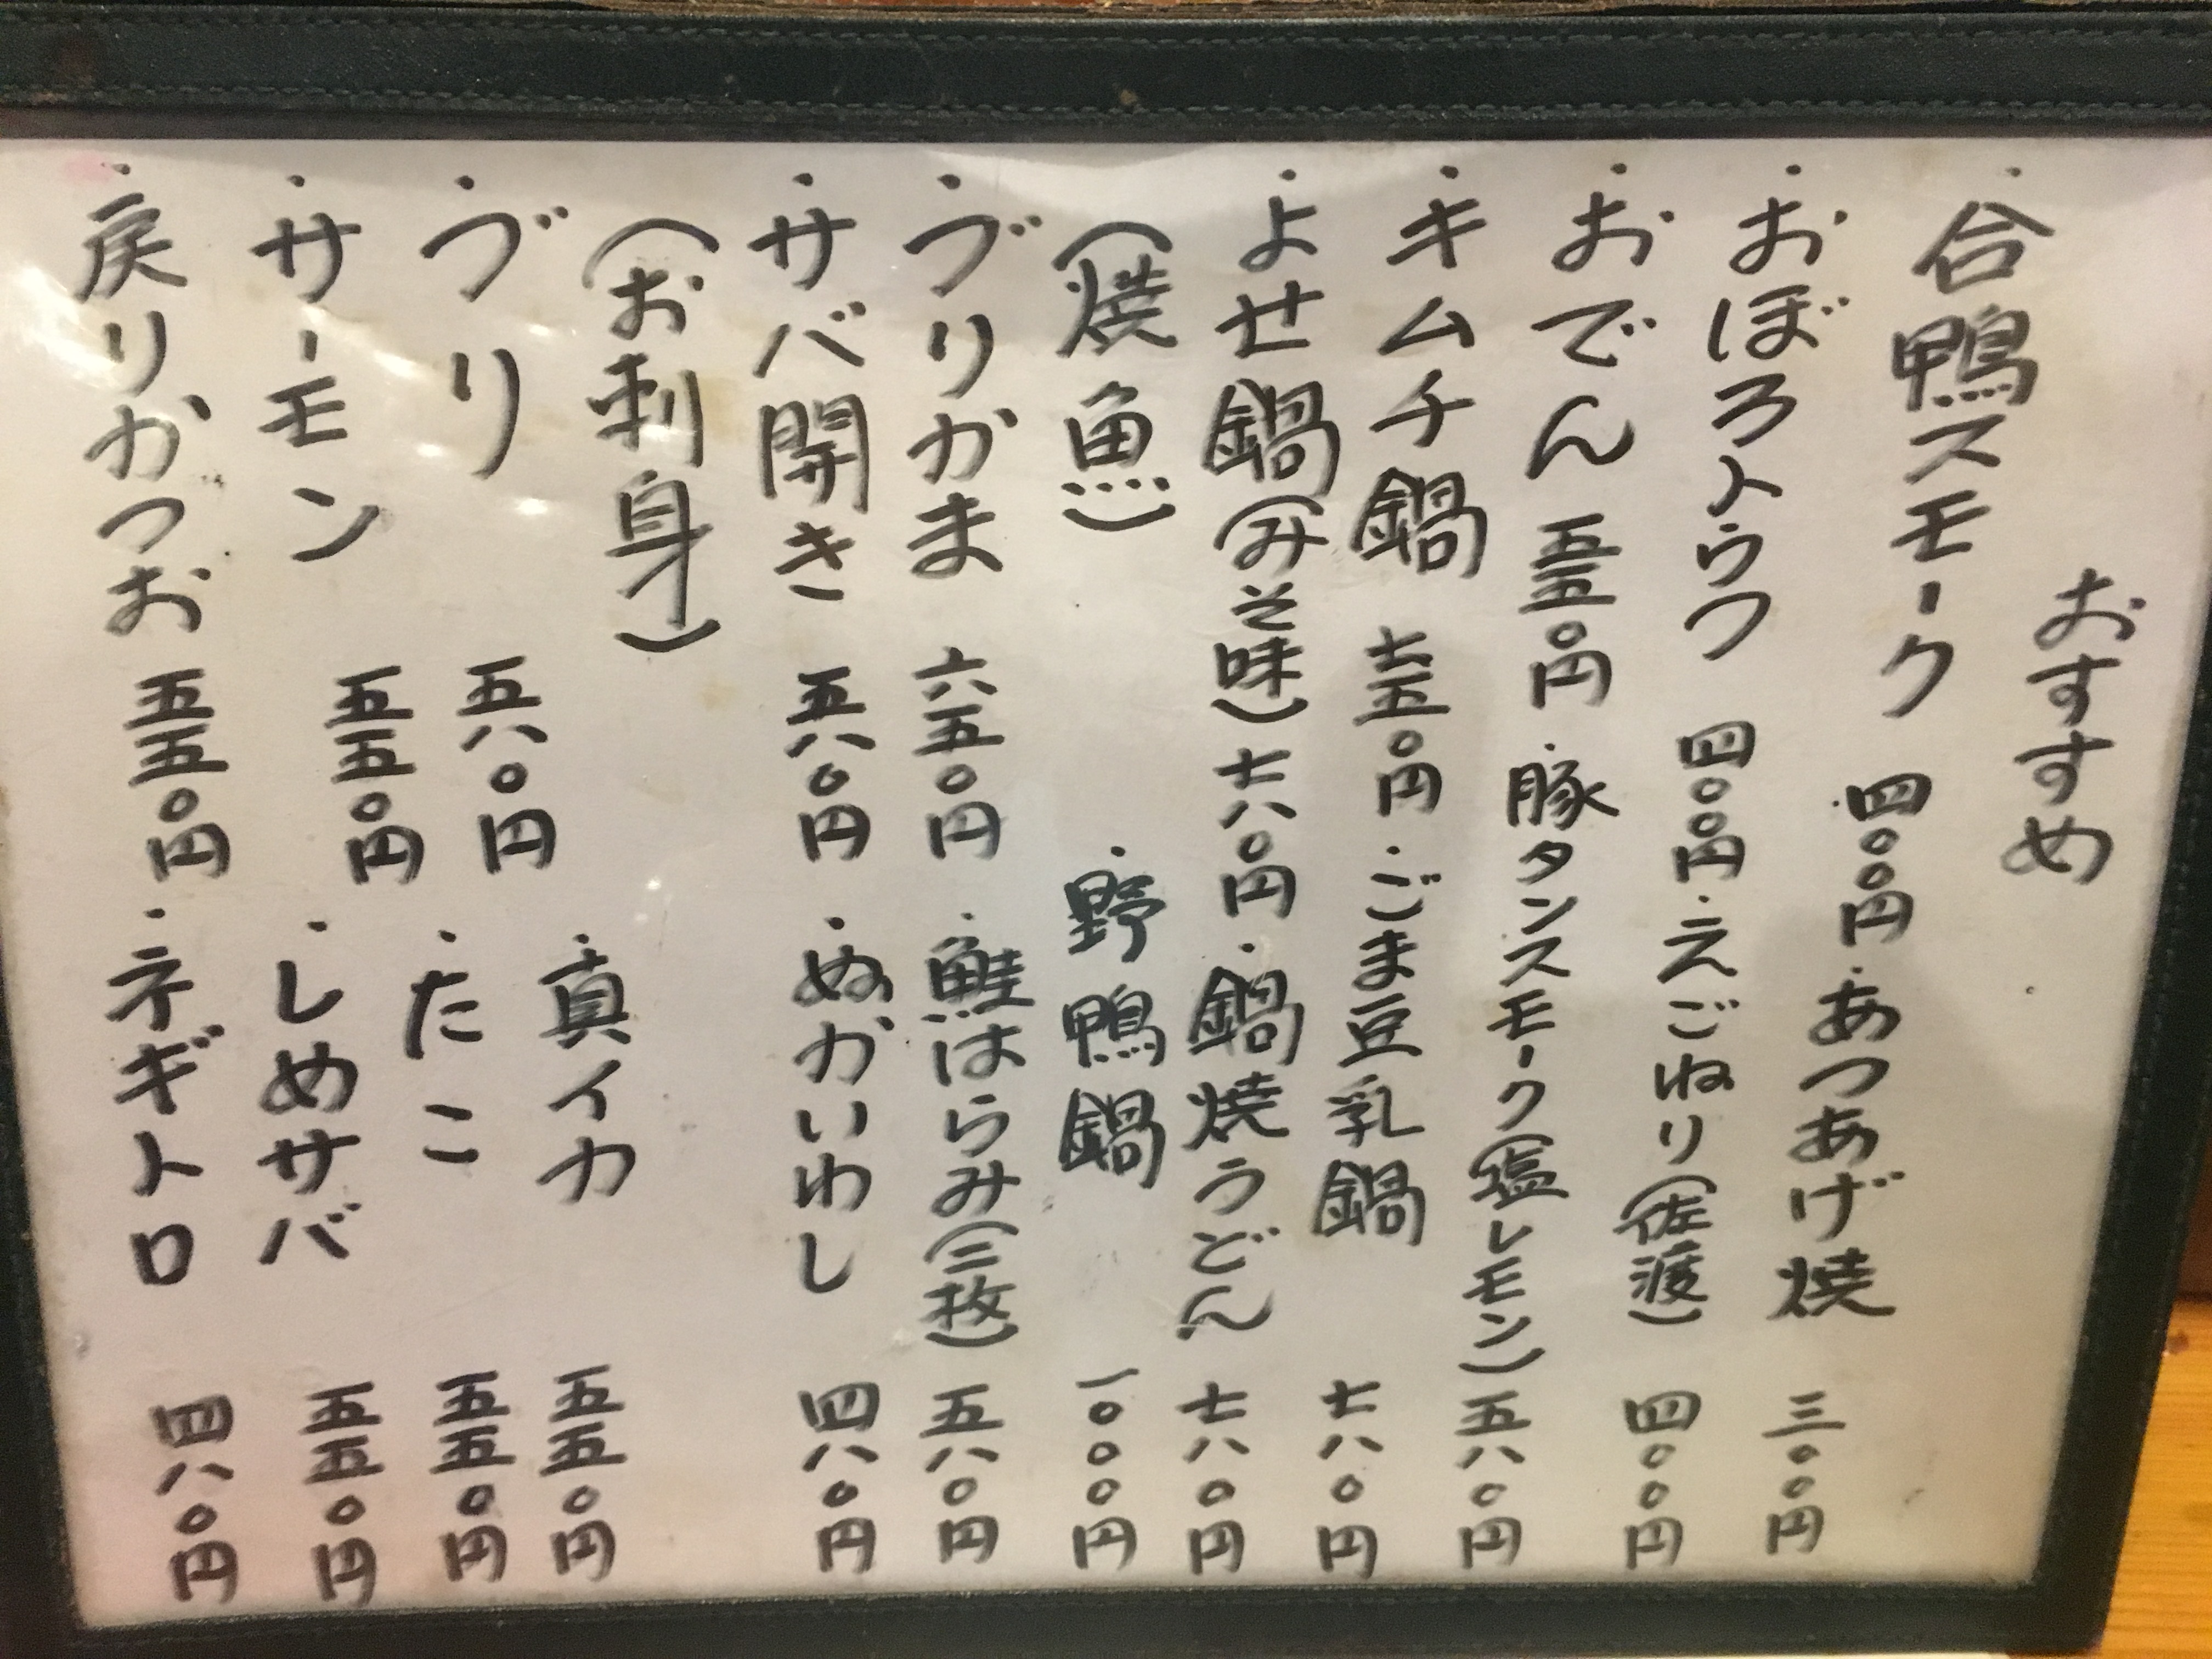 おすすめ
・合鴨スモーク 四〇〇円 ・あつあげ焼 三〇〇円
・おぼろトウフ 四〇〇円 ・えごねり(佐渡) 四〇〇円
・おでん 五五〇円 ・豚タンスモーク(塩レモン) 五八〇円
・キムチ鍋 七五〇円 ・ごま豆乳鍋 七八〇円
・よせ鍋(みそ味) 七八〇円 ・鍋焼うどん 七八〇円
(焼魚) ・野鴨鍋 一〇〇〇円
・ブリかま 六五〇円 ・鮭はらみ(二枚) 五八〇円
・サバ開き 五八〇円 ・ぬかいわし 四八〇円
(お刺身) ・真イカ 五五〇円
・ブリ 五八〇円 ・たこ 五五〇円
・サーモン 五五〇円 ・しめサバ 五五〇円
・戻りかつお 五五〇円 ・ネギトロ 四八〇円